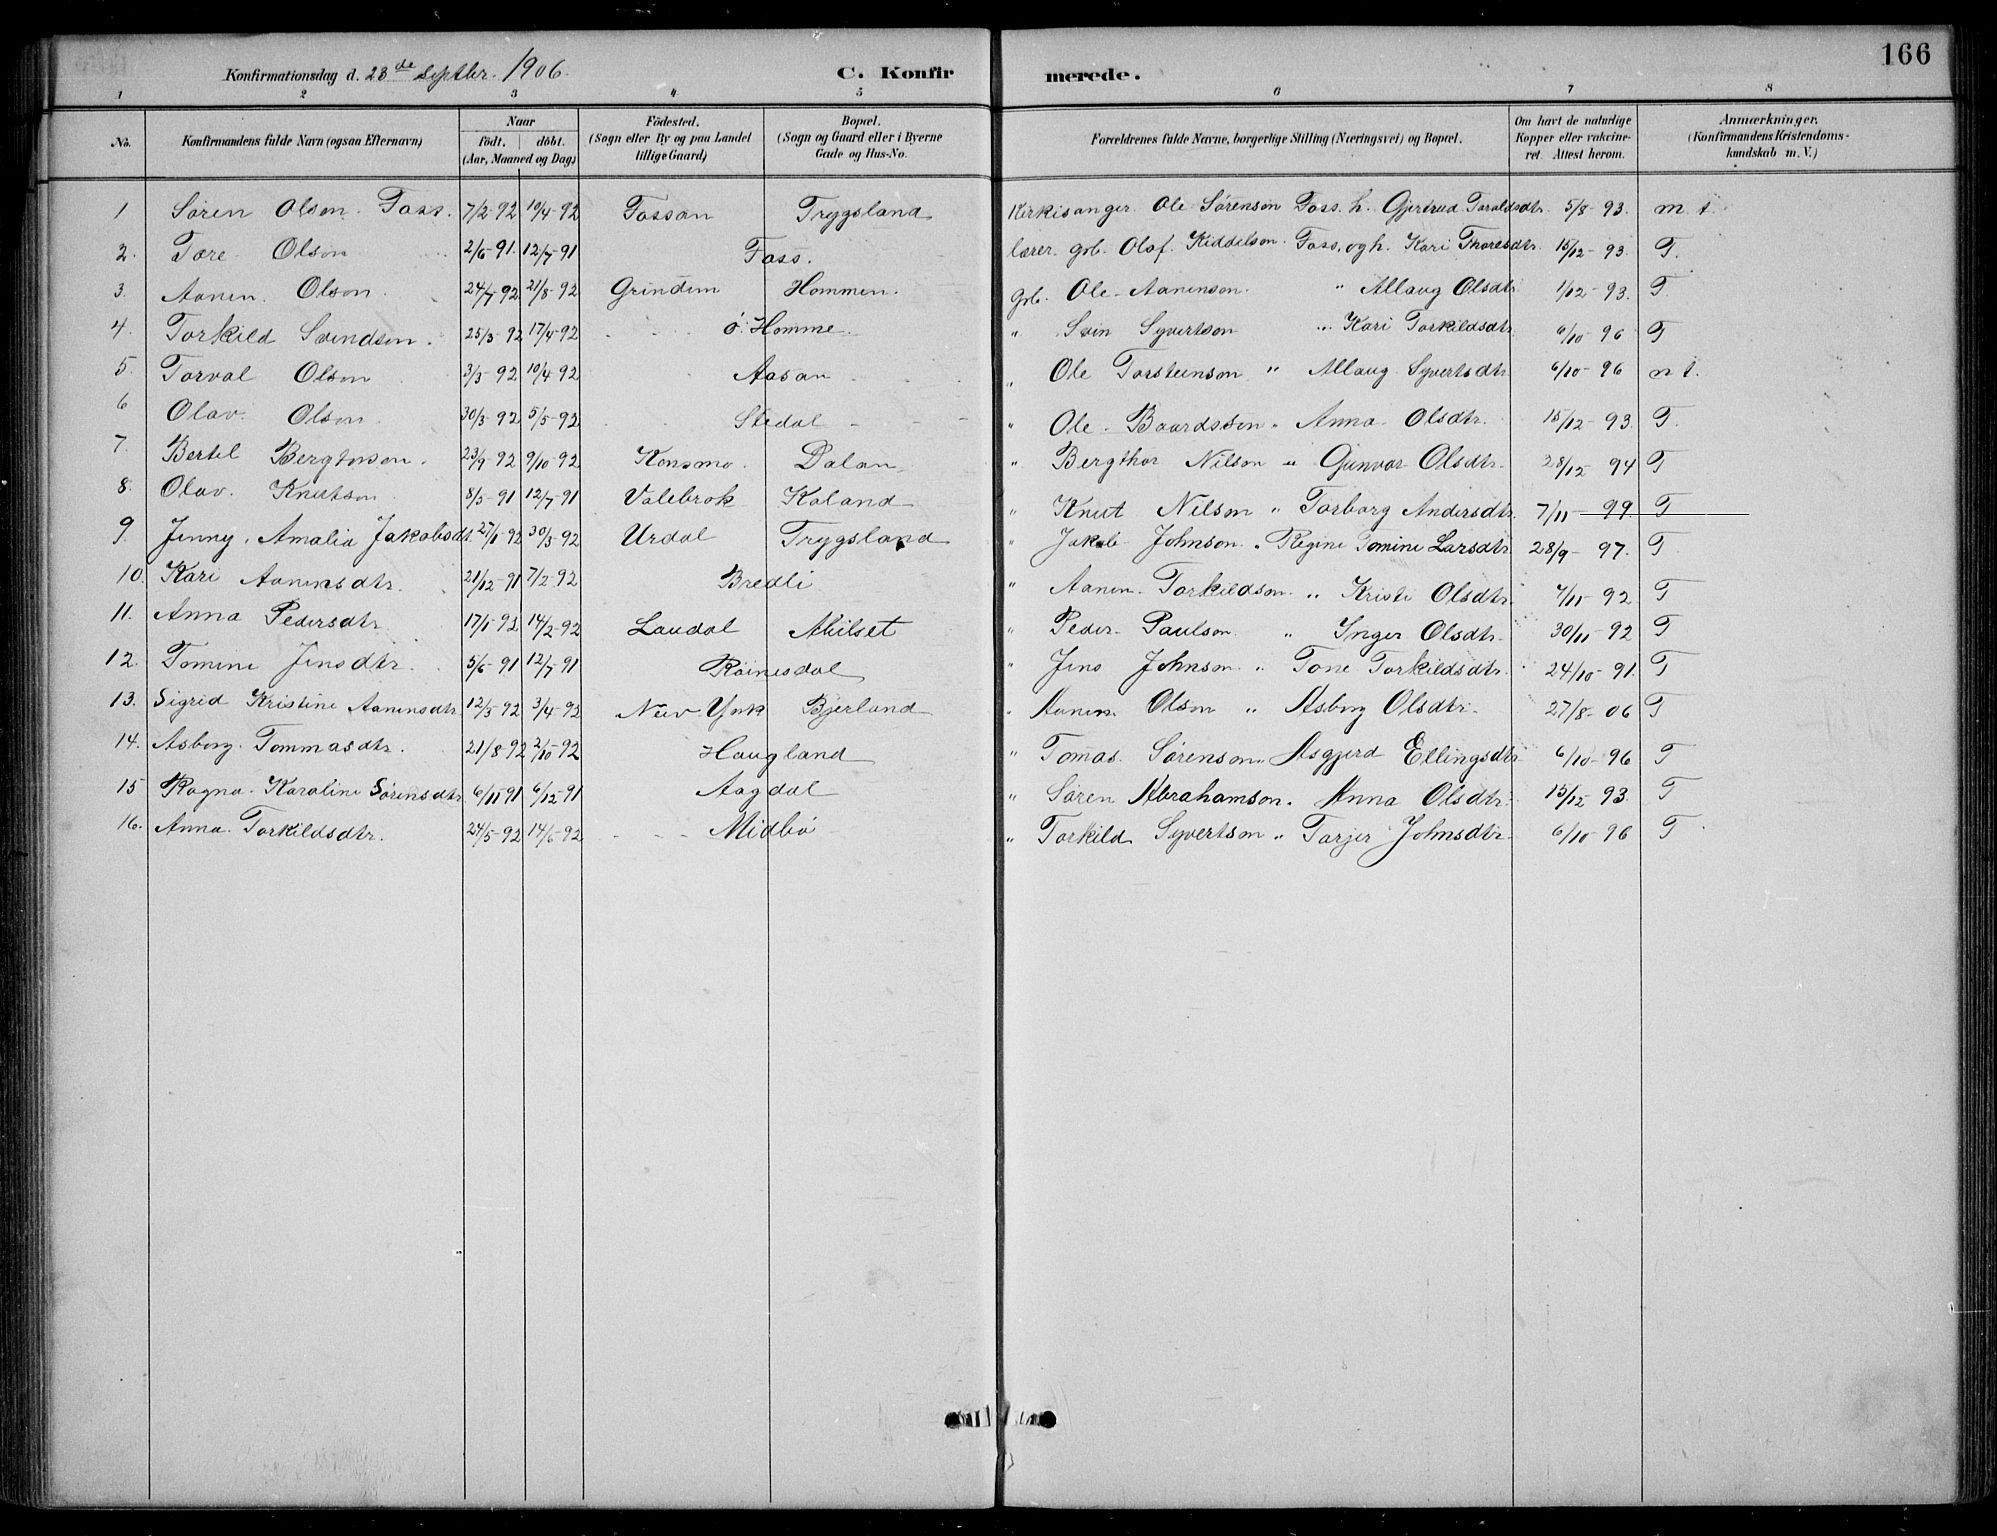 166
Konfirmationsdag d. 23de Septbr. 1906. C. Konfirmerede.
1 2 3 4 5 6 7 8
No. Konfirmandens fulde Navn (ogsaa Efternavn) Naar födt. döbt. (Aar, Maaned og Dag) Födested. (Sogn eller By og paa Landet tillige Gaard) Bopæl. (Sogn og Gaard eller i Byerne Gade og Hus-No. Forældrenes fulde Navne, borgerlige Stilling (Næringsvei) og Bopæl. Om havt de naturlige Kopper eller vakcineret. Attest herom. Anmærkninger. (Konfirmandens Kristendomskundskab m. V.)
1 Søren Olson Foss. 7/2-92 10/4-92 Fossan Trygsland Kirkisanger Ole Sørenson Foss. h. Gjertrud Taraldsdtr. 5/8-93. m t.
2. Tore Olson 2/6-91. 12/7-91 Foss. lærer. grb. Olaf Kiddelson Foss. og h. Kari Thoresdtr. 15/12-93. T.
3. Aanen. Olson 24/7-92 21/8-92 Grindem Hommen. Grb. Ole Aanenson. " Allaug Olsdtr 1/12-93. T.
4. Torkild Svendsen. 25/3-92 17/4-92 ø. Homme. " Svin Syvertson " Kari Torkildsdtr 6/10-96 T
5. Torval Olson 3/3-92 10/4-92 Aasan " Ole Torsteinson " Allaug Syvertsdtr 6/10-96 m t.
6 Olav. Olson. 30/3-92 5/5-92 Stedal " Ole Baardsson " Anna Olsdtr. 15/12-93. T.
7. Bertel Bergtorson. 23/9-92 9/10-92 Konsmo. Dalan " Bergthor Nilson " Gunvor Olsdtr. 28/12 94 T
8. Olav. Knutson 8/5-91 12/7-91 Valebrok Kaland " Knut Nilson " Torborg Andersdtr. 7/11-99. T
9. Jenny. Amalia Jakobsdt. 27/1-92 30/3-92 Urdal Trygsland " Jakob Johnson " Regine Tomine Larsdtr 28/9-97. T.
10. Kari Aanensdtr. 21/12-91 7/2-92 Bredli " Aanen Torkildson " Kristi Olsdtr. 7/11-92 T
11. Anna Pedersdtr 17/1-92 14/2-92 Laudal Abilset " Peder Paulson " Inger Olsdtr. 30/11-92 T
12. Tomine Jensdtr. 5/6-91 12/7-91 Røinesdal " Jens Johnson " Tone Torkildsdtr. 24/10-91. T
13. Sigrid Kristine Aanensdtr 12/3-92 3/4-92 New York Bjerland " Aanen Olson " Asborg Olsdtr. 27/8-06 T
14. Asborg Tommasdtr. 21/8-92 2/10-92 Haugland " Tomas Sørenson " Asgjerd Ellingsdtr 6/10-96 T
15 Ragna Karoline Sørensdtr 6/11 91 6/12-91 Aagdal " Søren Abrahamson. Anna Olsdtr. 15/12 93. T
16. Anna. Torkildsdtr. 24/5-92 14/6-92 Midbø " Torkild Syvertson " Tarjer Johnsdtr 6/10-96 T